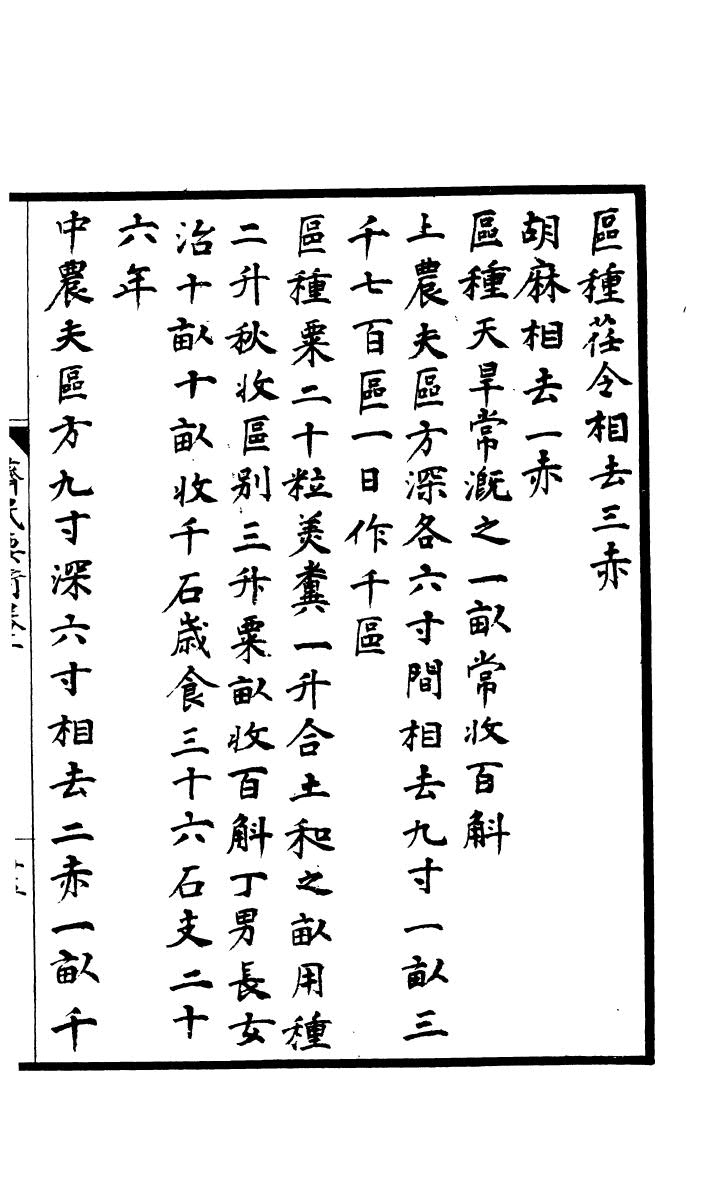 區種荏令相去三赤
胡麻相去一赤
區種天旱常漑之一畝常收百斛
上農夫區方深各六寸間相去九寸一畝三
千七百區一日作千區
區種粟二十粒美糞一升合土和之畝用種
二升秋收區别三升粟畝收百斛丁男長女
治十畝十畝收千石歳食三十六石支二十
六年
中農夫區方九寸深六寸相去二赤一畝千